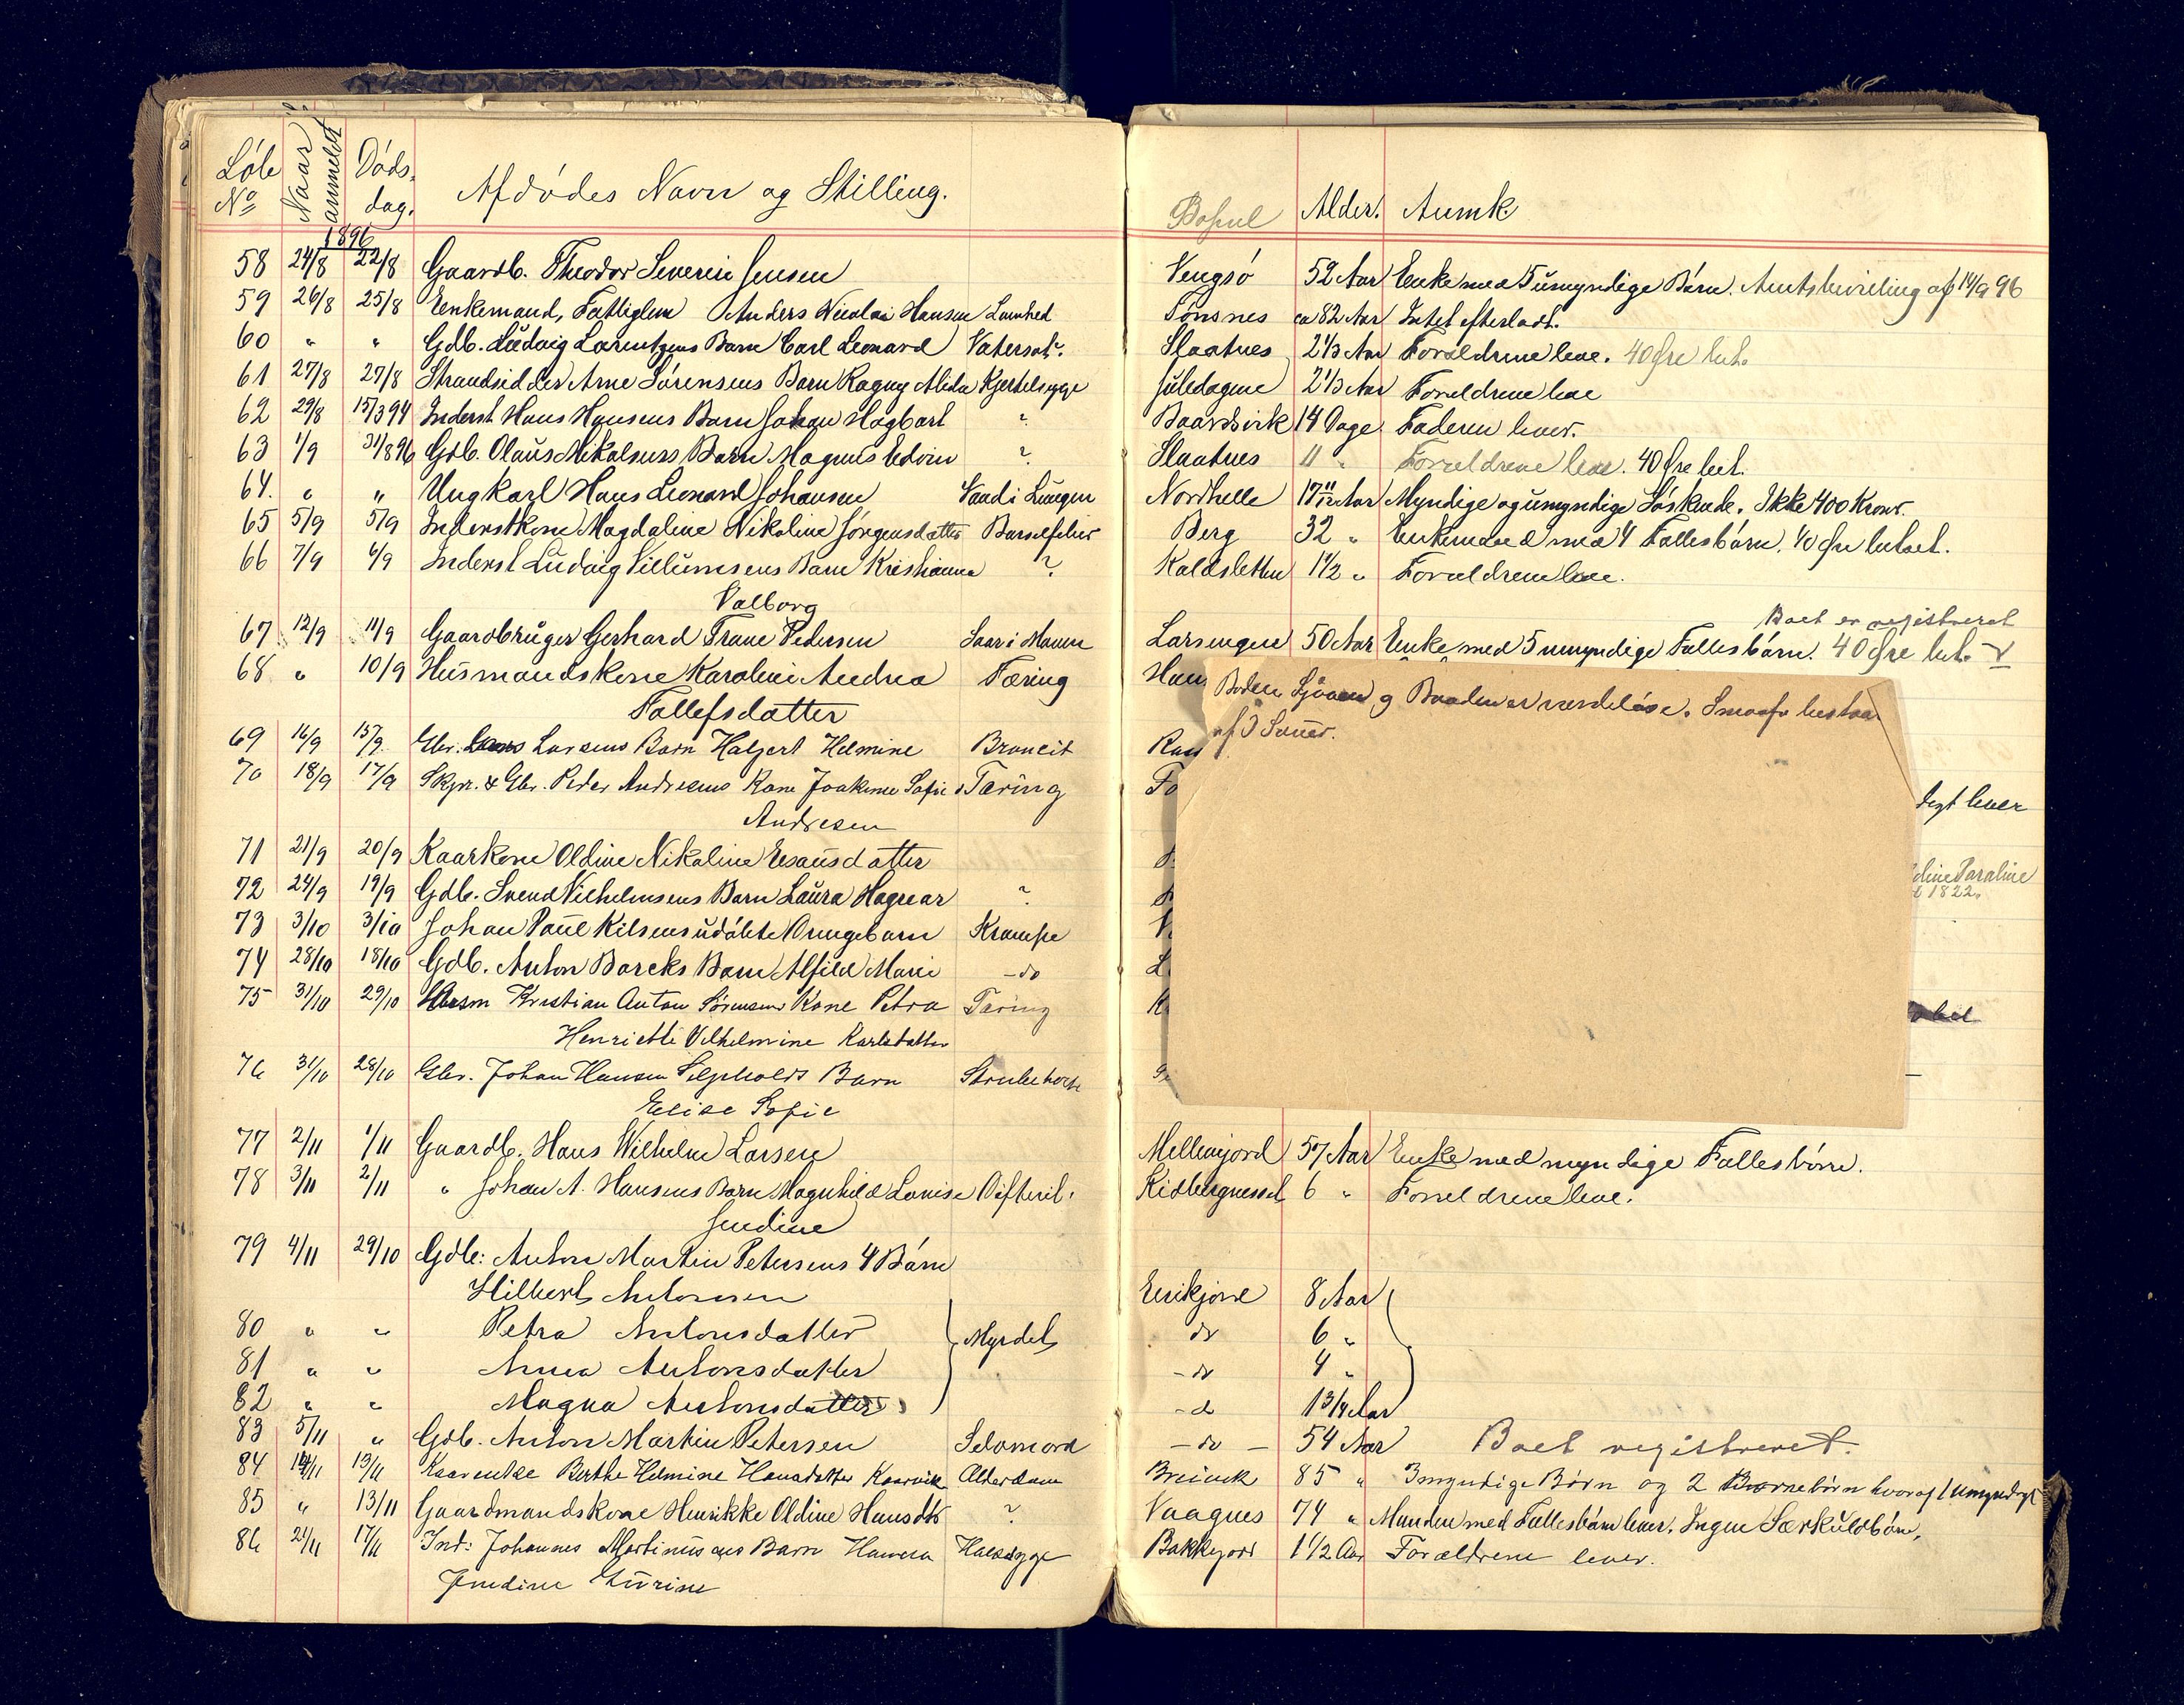 Löbe No Naar anmeldt Döds dag. Afdödes Navn og Stilling. Bopæl Alder. Anmk.
1896
58 24/8 22/8 Gaardb. Theodor Severin Jensen Vengsö 52 Aar Enke med 5 umyndige Börn. Amtsbevilling af 14/9 96
59 26/8 25/8 Enkemand, Fattiglem Anders Nicolai Hansen Lamhed Tönsnes ca 82 Aar Intet efterladt.
60 " " Gdb. Ludvig Larentzens Barn Carl Leonard Vatersot. Slaatnes 2 1/3 Aar Forældrene leve. 40 Øre bet.
61 27/8 27/8 Strandsidder Arne Sörensens Barn Ragny Alida Kjertelsyge 2 1/3 Aar Forældrene leve
62 29/8 15/3 94 Inderst Hans Hansens Barn Johan Hagbart " Baardsvik 14 Dage Faderen lever.
63 1/9 31/8 96 Gdb. Olaus Mikalsens Barn Magnus Edvin ? Slaatnes 11 " Forældrene leve. 40 Øre bet.
64. " " Ungkarl Hans Leonard Johansen Vand i Lungen Nordhelle 17 11/12 Aar Myndige og umyndige Söskende. Ikke 400 Kroner.
65 5/9 5/9 Inderstkone Magdaline Nikoline Jörgensdatter Barselfeber Berg 32 " Enkemand med 4 Fællesbörn. 40 Øre betalt.
66 7/9 4/9 Inderst Ludvig Villumsens Barn Kristianna ? Kaldsletten 1 1/2 " Forældrene leve.
Valborg
Boet er registreret
67 12/9 11/9 Gaardbruger Gerhard Trane Pedersen Saar i Maven Larsengen 50 Aar Enke med 5 umyndige Fællesbörn. 40 Øre bet.
68 " 10/9 Husmandskone Karoline Andrea Tæring
Tollefsdatter
Boden Sjöaen og Baaden er værdelöse. Smaafe bestaar
af 3 Sauer.
69 16/9 15/9 Gbr. Larsens Barn Halgert Helmine Broncit
70 18/9 17/9 Skpr. & Gbr. Peder Andresens Kone Joakime Sofie Tæring
digt lever
Andresen
71 21/9 20/9 Kaarkone Oldine Nikoline Esausdatter
72 24/9 19/9 Gdb. Svend Vilhelmsens Barn Laura Hagnar ?
73 3/10 3/10 Johan Paul Kilsens udöbte Drengebarn Krampe
74 28/10 18/10 Gdb. Anton Barcks Barn Alfild Marie – do
75 31/10 29/10 Husm Kristian Anton Sörensens Kone Petra Tæring
Henriette Vilhelmine Karlsdatter
76 31/10 28/10 Gbr. Johan Hansen Seljeholdt Barn Strubehoste
Elise Sofie
77 2/11 1/11 Gaardb. Hans Wilhelm Larsen Mellemjord 57 Aar Enke med myndige Fællesbörn.
78 3/11 2/11 " Johan A. Hansens Barn Magnhild Lovise Difterit. 6 " Forældrene leve.
Jendine
79 4/11 29/10 Gdb: Anton Martin Petersens 4 Börn
Hilbert Antonsen Erikjord 8 Aar
80 " " Petra Antonsdatter Myrdet do 6 "
81 " " Anna Antonsdatter – do 4 "
82 " " Magna Antonsdatter – do 1 3/4 Aar
83 5/11 " Gdb. Anton Martin Petersen Selvmord – do – 54 Aar Boet registreret.
84 14/11 13/11 Kaarenke Berthe Helmine Hansdatter Kaarvik Alderdom Breivik 85 " 3 myndige Börn og 2 Barnebörn hvoraf 1 umyndigt
85 " 13/11 Gaardmandskone Henrikke Oldine Hansdtr ? Vaagnes 74 " Manden med Fællesbörn lever. Ingen Særkuldbörn,
86 21/11 17/11 Ind: Johannes Martinussens Barn Hanna Halssyge Bakkejord 1 1/2 Aar Forældrene lever.
Jendine